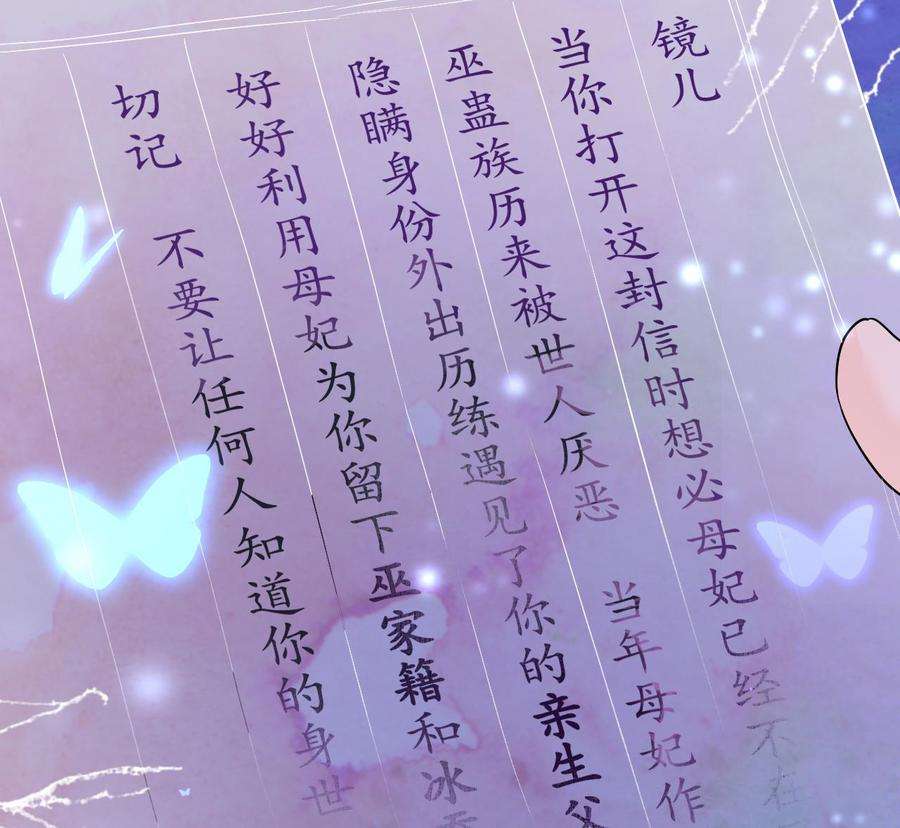 镜儿
当你打开这封信时想必母妃已经不在
巫蛊族历来被世人厌恶 当年母妃作
隐瞒身份外出历练遇见了你的亲生父
好好利用母妃为你留下巫家籍和冰
切记 不要让任何人知道你的身世